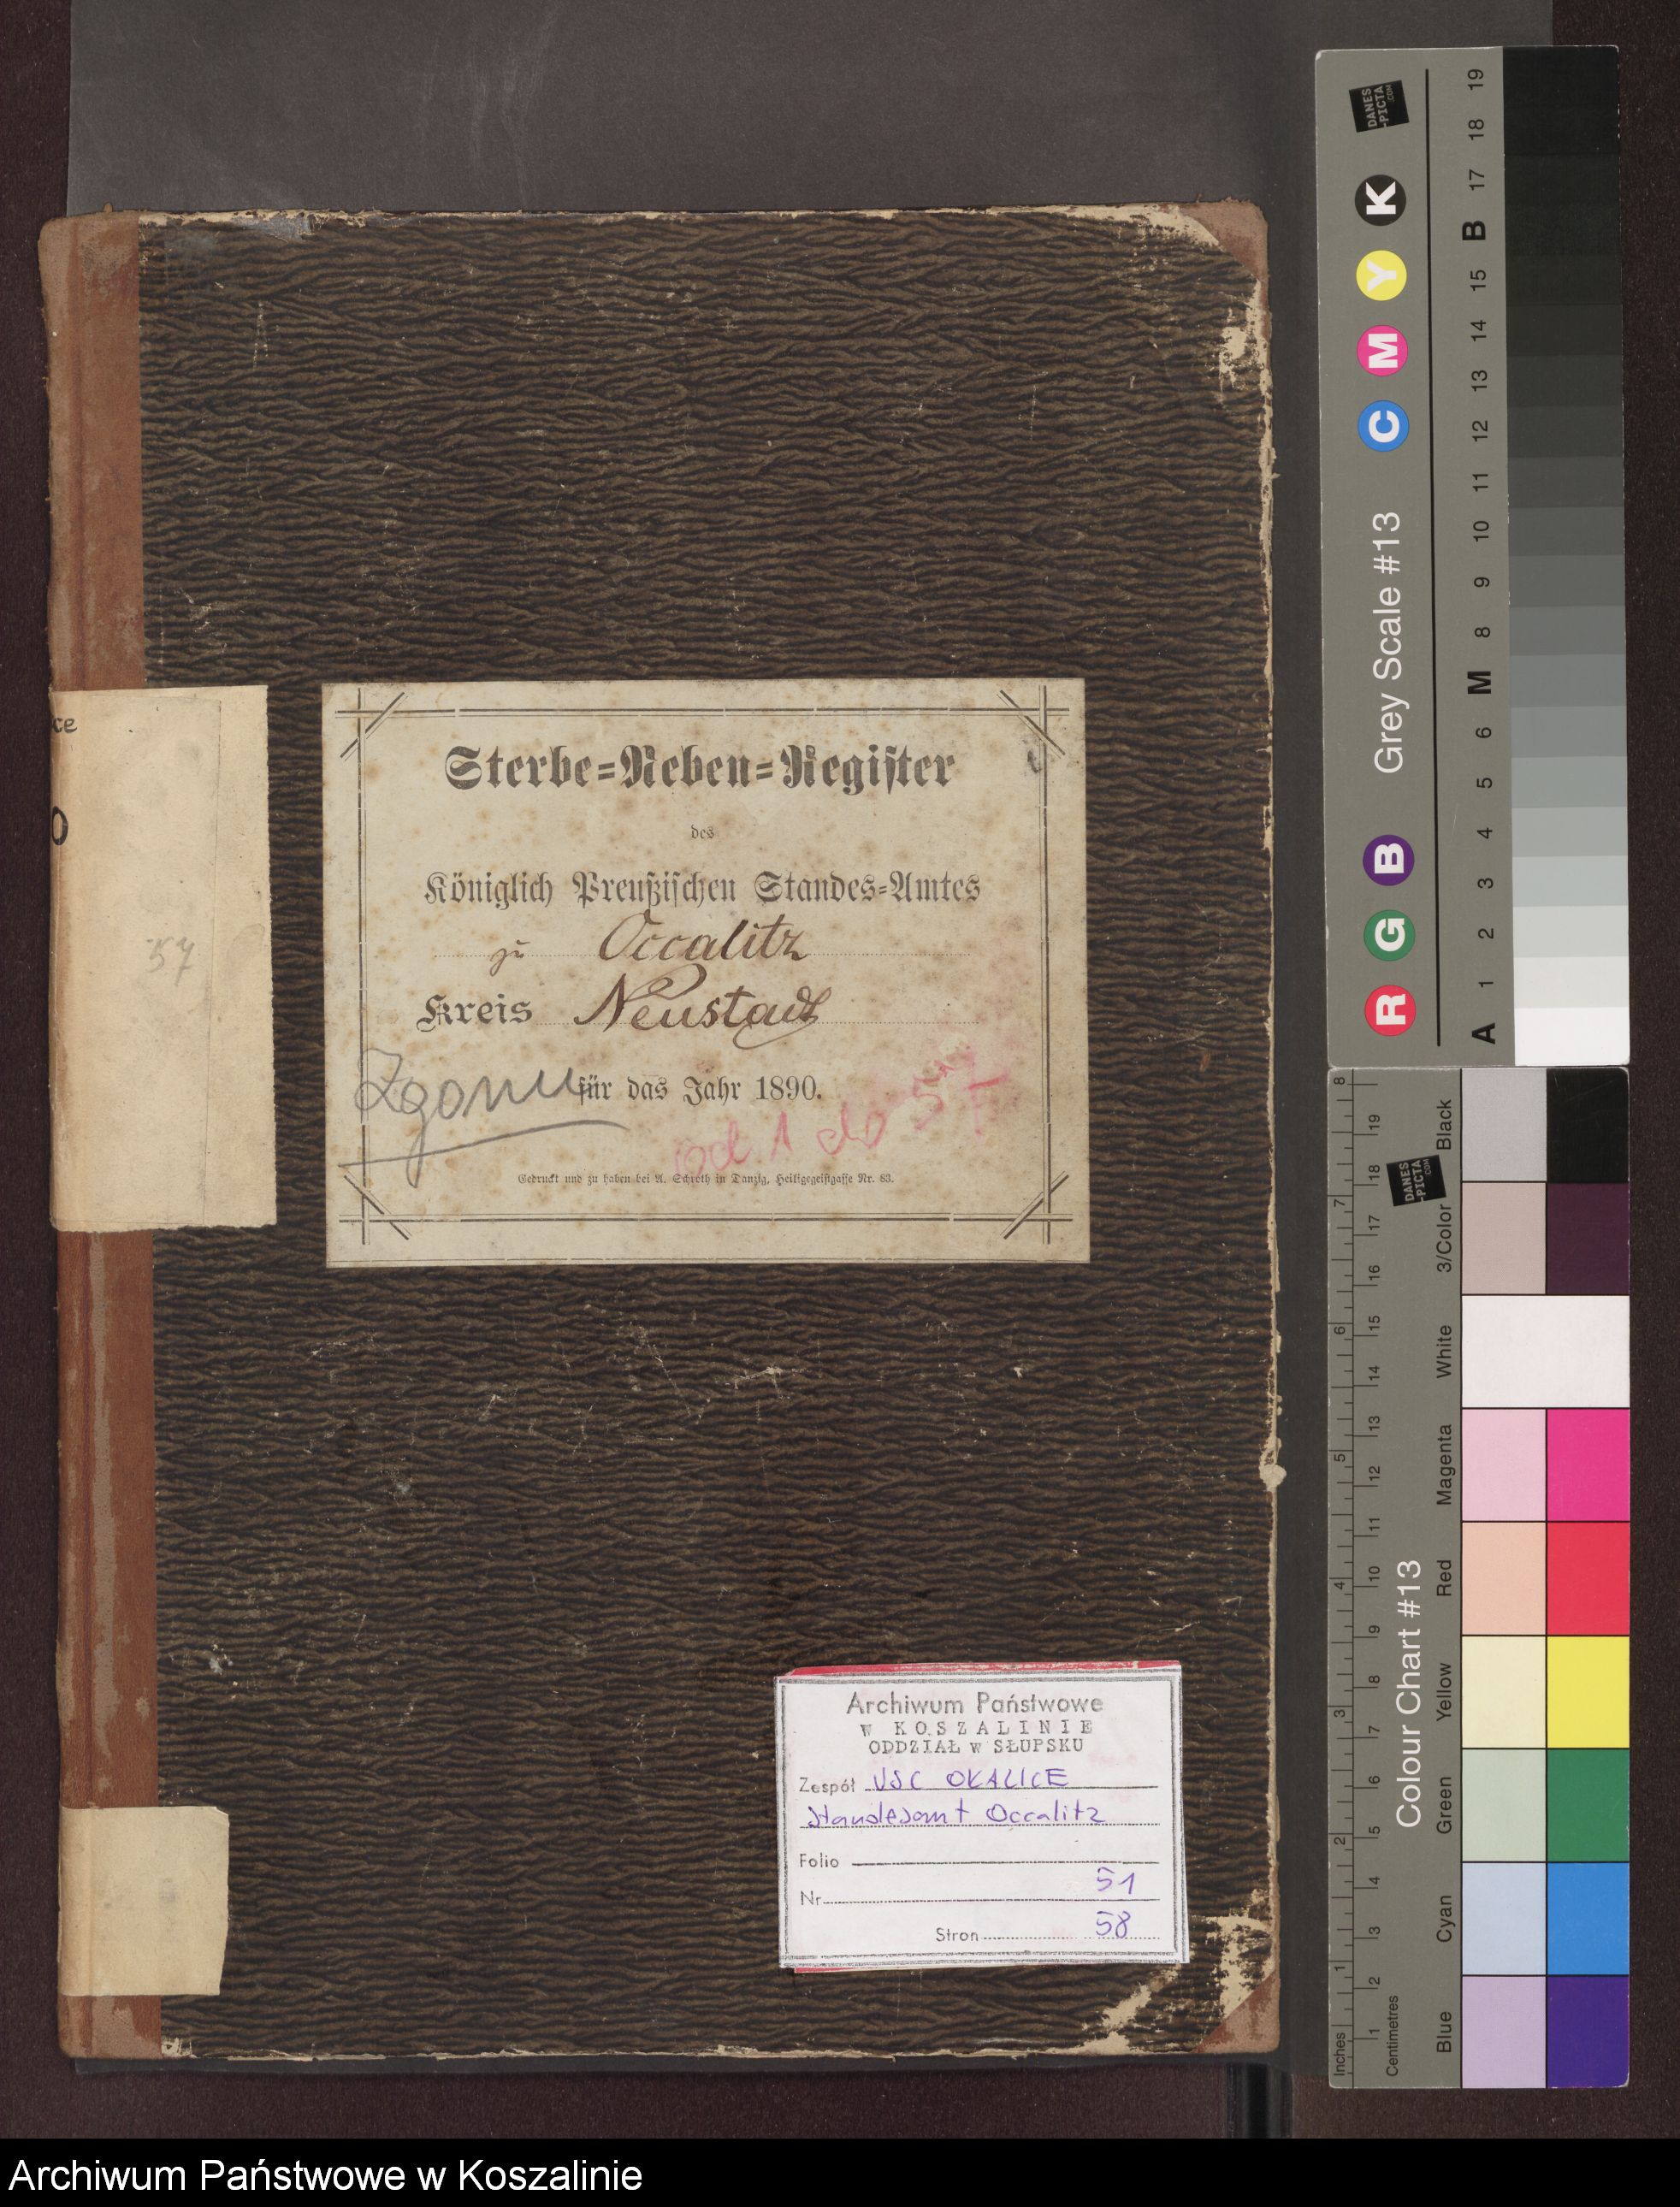 Sterbe=Neben=Register
des
Königlich Preußischen Standes=Amtes
zu Occalitz
Kreis Neustadt
Zgony für das Jahr 1890.
od. 1 do 57
Gedruckt und zu haben bei A. Schroth in Danzig, Heiligegeistgasse Nr. 83.
ce
0
57
Archiwum Państwowe
w KOSZALINIE
ODDZIAŁ w SŁUPSKU
Zespół USC OKALICE
Standesamt Occalitz
Folio
Nr 51
Stron 58
DANES
-PICTA
.COM
Grey Scale #13
R G B C M Y K
A 1 2 3 4 5 6 M 8 9 10 11 12 13 14 15 B 17 18 19
DANES
-PICTA
.COM
Colour Chart #13
Blue Cyan Green Yellow Red Magenta White 3/Color Black
Inches 1 2 3 4 5 6 7 8
Centimetres 1 2 3 4 5 6 7 8 9 10 11 12 13 14 15 16 17 18 19
Archiwum Państwowe w Koszalinie